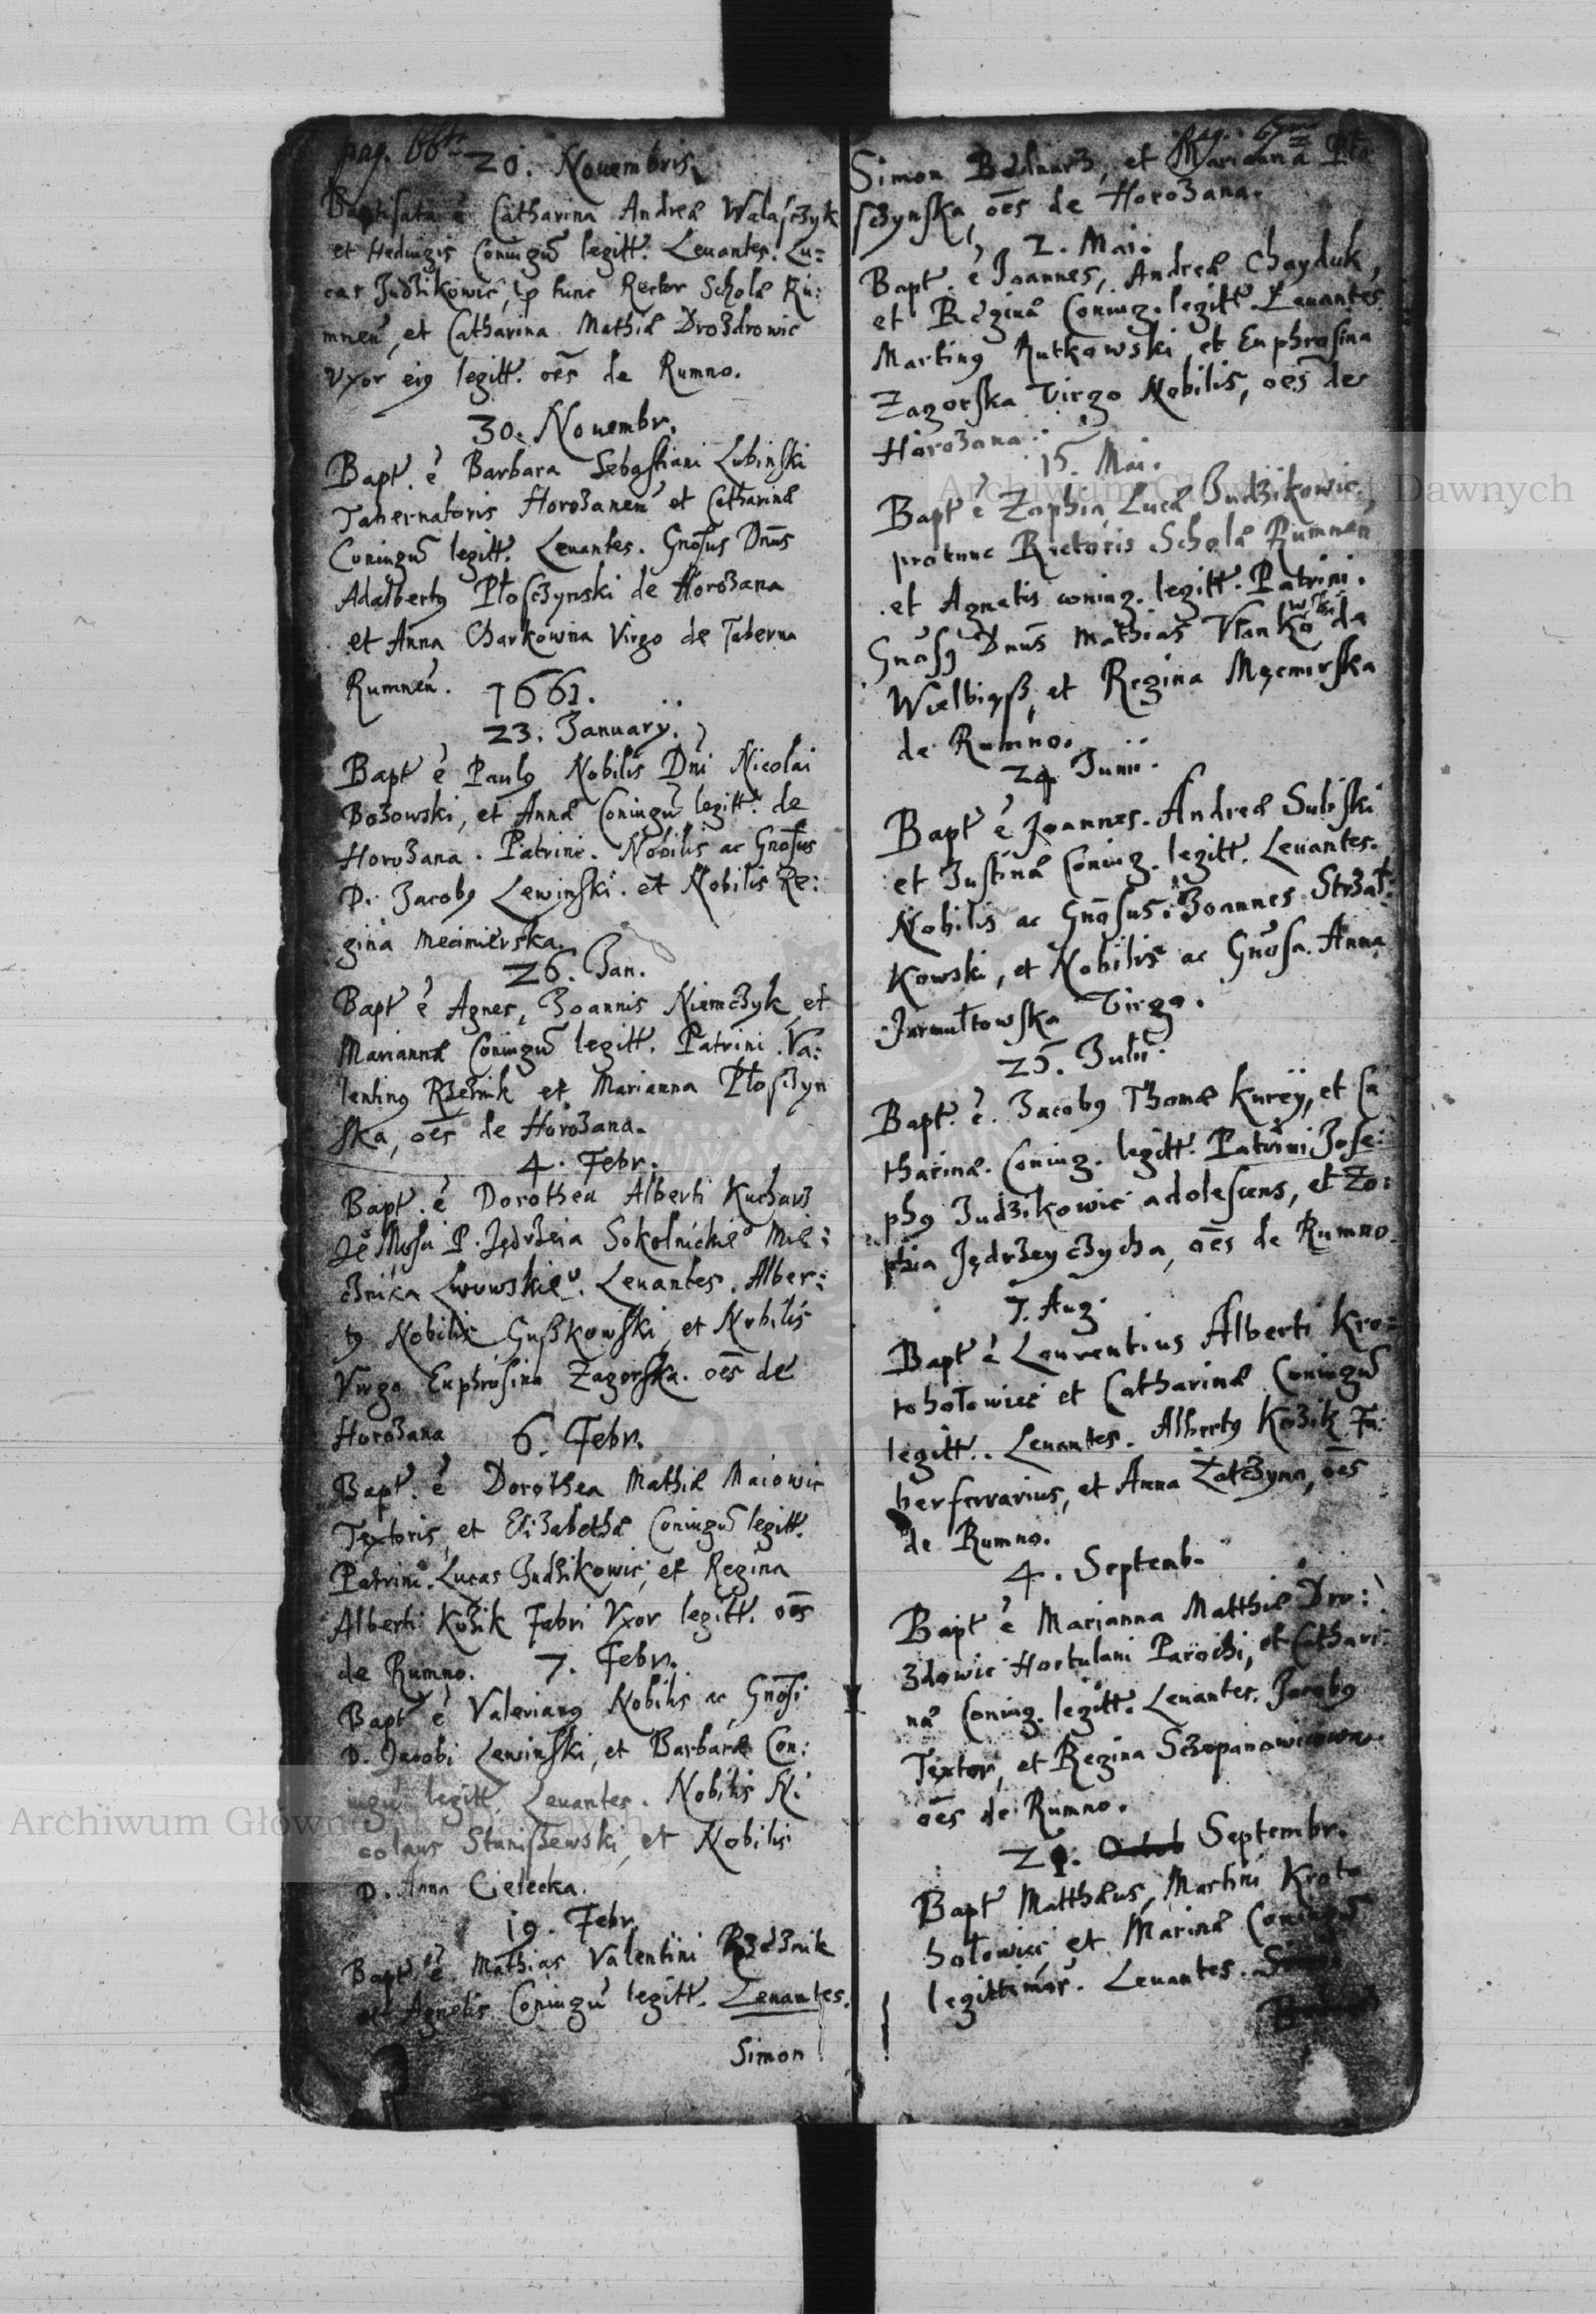 pag. 66ta
20. Nouembris.
Baptisata ē Catharina Andreæ Walasczyk
et Hedwigis Coniugū legitt. Leuantes. Lu=
cas Judzikowic, p tunc Rector Scholæ Ru:
mneñ, et Catharina Mathiæ Drozdrowic
Vxor eiq legitt. oēs de Rumno.
30. Nouembr.
Bapt. ē Barbara Sebastiani Lubinski
Tabernatoris Horozaneñ et Catharinæ
Coniugū legitt. Leuantes. Gnōsus Dnūs
Adalbertq Płosczynski de Horozana
et Anna Charkowna Virgo de Taberna
Rumneñ. 1661.
23. January.
Bapt ē Paulq Nobilis Dni Nicolai
Bozowski, et Annæ Coniugū legitt. de
Horozana. Patrini. Nobilis ac Gnōsus
D. Jacobq Lewinski. et Nobilis Re:
gina Mecimierska.
26. Jan.
Bapt ē Agnes, Joannis Niemczyk et
Mariannæ Coniugū legitt. Patrini. Va:
lentinq Rzeznik et Marianna Płosczyn
ska, oēs de Horozana.
4. Febr.
Bapt. ē Dorothea Alberti Kucharz
Je Mosci P. Jędrzeia Sokolnickieo Mie:
cznika Lwowskieo. Leuantes. Alber:
tq Nobilis Guszkowski et Nobilis
Virgo Euphrosina Zagorska. oēs de
Horozana 6. Febr.
Bapt. ē Dorothea Mathiæ Maiowic
Textoris, et Elizabethæ Coniugū legitt.
Patrini. Lucas Judzikowic, et Regina
Alberti Kozik Fabri Vxor legitt. oēs
de Rumno. 7. Febr.
Bapt ē Valerianq Nobilis ac Gnōsi
D. Jacobi Lewinski, et Barbaræ Con:
iugū legitt. Leuantes. Nobilis Ni
colaus Staniszewski, et Nobilis
D. Anna Cielecka.
19. Febr.
Bapt ē Mathias Valentini Rzeznik
et Agnetis Coniugū legitt. Leuantes.
Simon
Pag. 67ma
Simon Bednarz, et Marianna Pło
sczynska, oēs de Horozana.
2. Mai.
Bapt. ē Joannes, Andreæ Chayduk,
et Reginæ Coniug. legitt. Leuantes
Martinq Rutkowski et Euphrosina
Zagorska Virgo Nobilis, oēs de
Horozana.
15. Mai.
Bapt ē Zophia Lucæ Judzikowic,
protunc Rectoris Scholæ Rumneñ
et Agnetis coniug. legitt. Patrini.
Gnōsq Dnūs Mathias
Wielbiąsz, et Regina Męcmirska
de Rumno.
24 Junii.
Bapt ē Joannes. Andreæ Subski
et Justinæ Coniug. legitt. Leuantes.
Nobilis ac Gnōsus. Joannes Strzał:
kowski, et Nobilis ac Gnōsa. Anna
Jarmułtowska Virgo.
25. Julii.
Bapt. ē. Jacobq Thomæ Kurey, et Ca
tharinæ. Coniug. legitt. Patrini Jose:
phq Judzikowic adolescens, et Zo:
phia Jędrzeyczycha, oēs de Rumno.
7. Aug.
Bapt ē Laurentius Alberti Kro=
toholowiec et Catharinæ Coniugū
legitt. Leuantes. Albertq Kozik Fa:
ber ferrarius, et Anna Zatczyna, oēs
de Rumno.
4. Septemb.
Bapt ē Marianna Matthiæ Dro:
zdowic Hortulani Parochi, et Cathari:
næ Coniug. legitt. Leuantes. Jacobq
Textor, et Regina Sczepanowicowa.
oēs de Rumno.
21. Octob Septembr.
Bapt Matthæus, Martini Kroto
holowiec et Marinæ Coniugū
legittimor. Leuantes. Simon
Archiwum Główne Akt Dawnych
Archiwum Główne Akt Dawnych